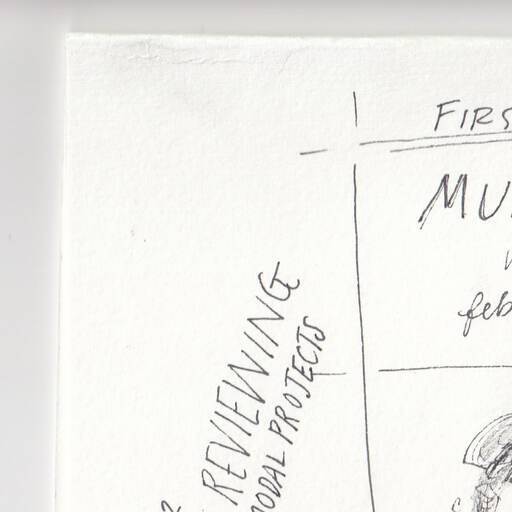 FIRS
MU
feb
REVIEWING
MODAL PROJECTS